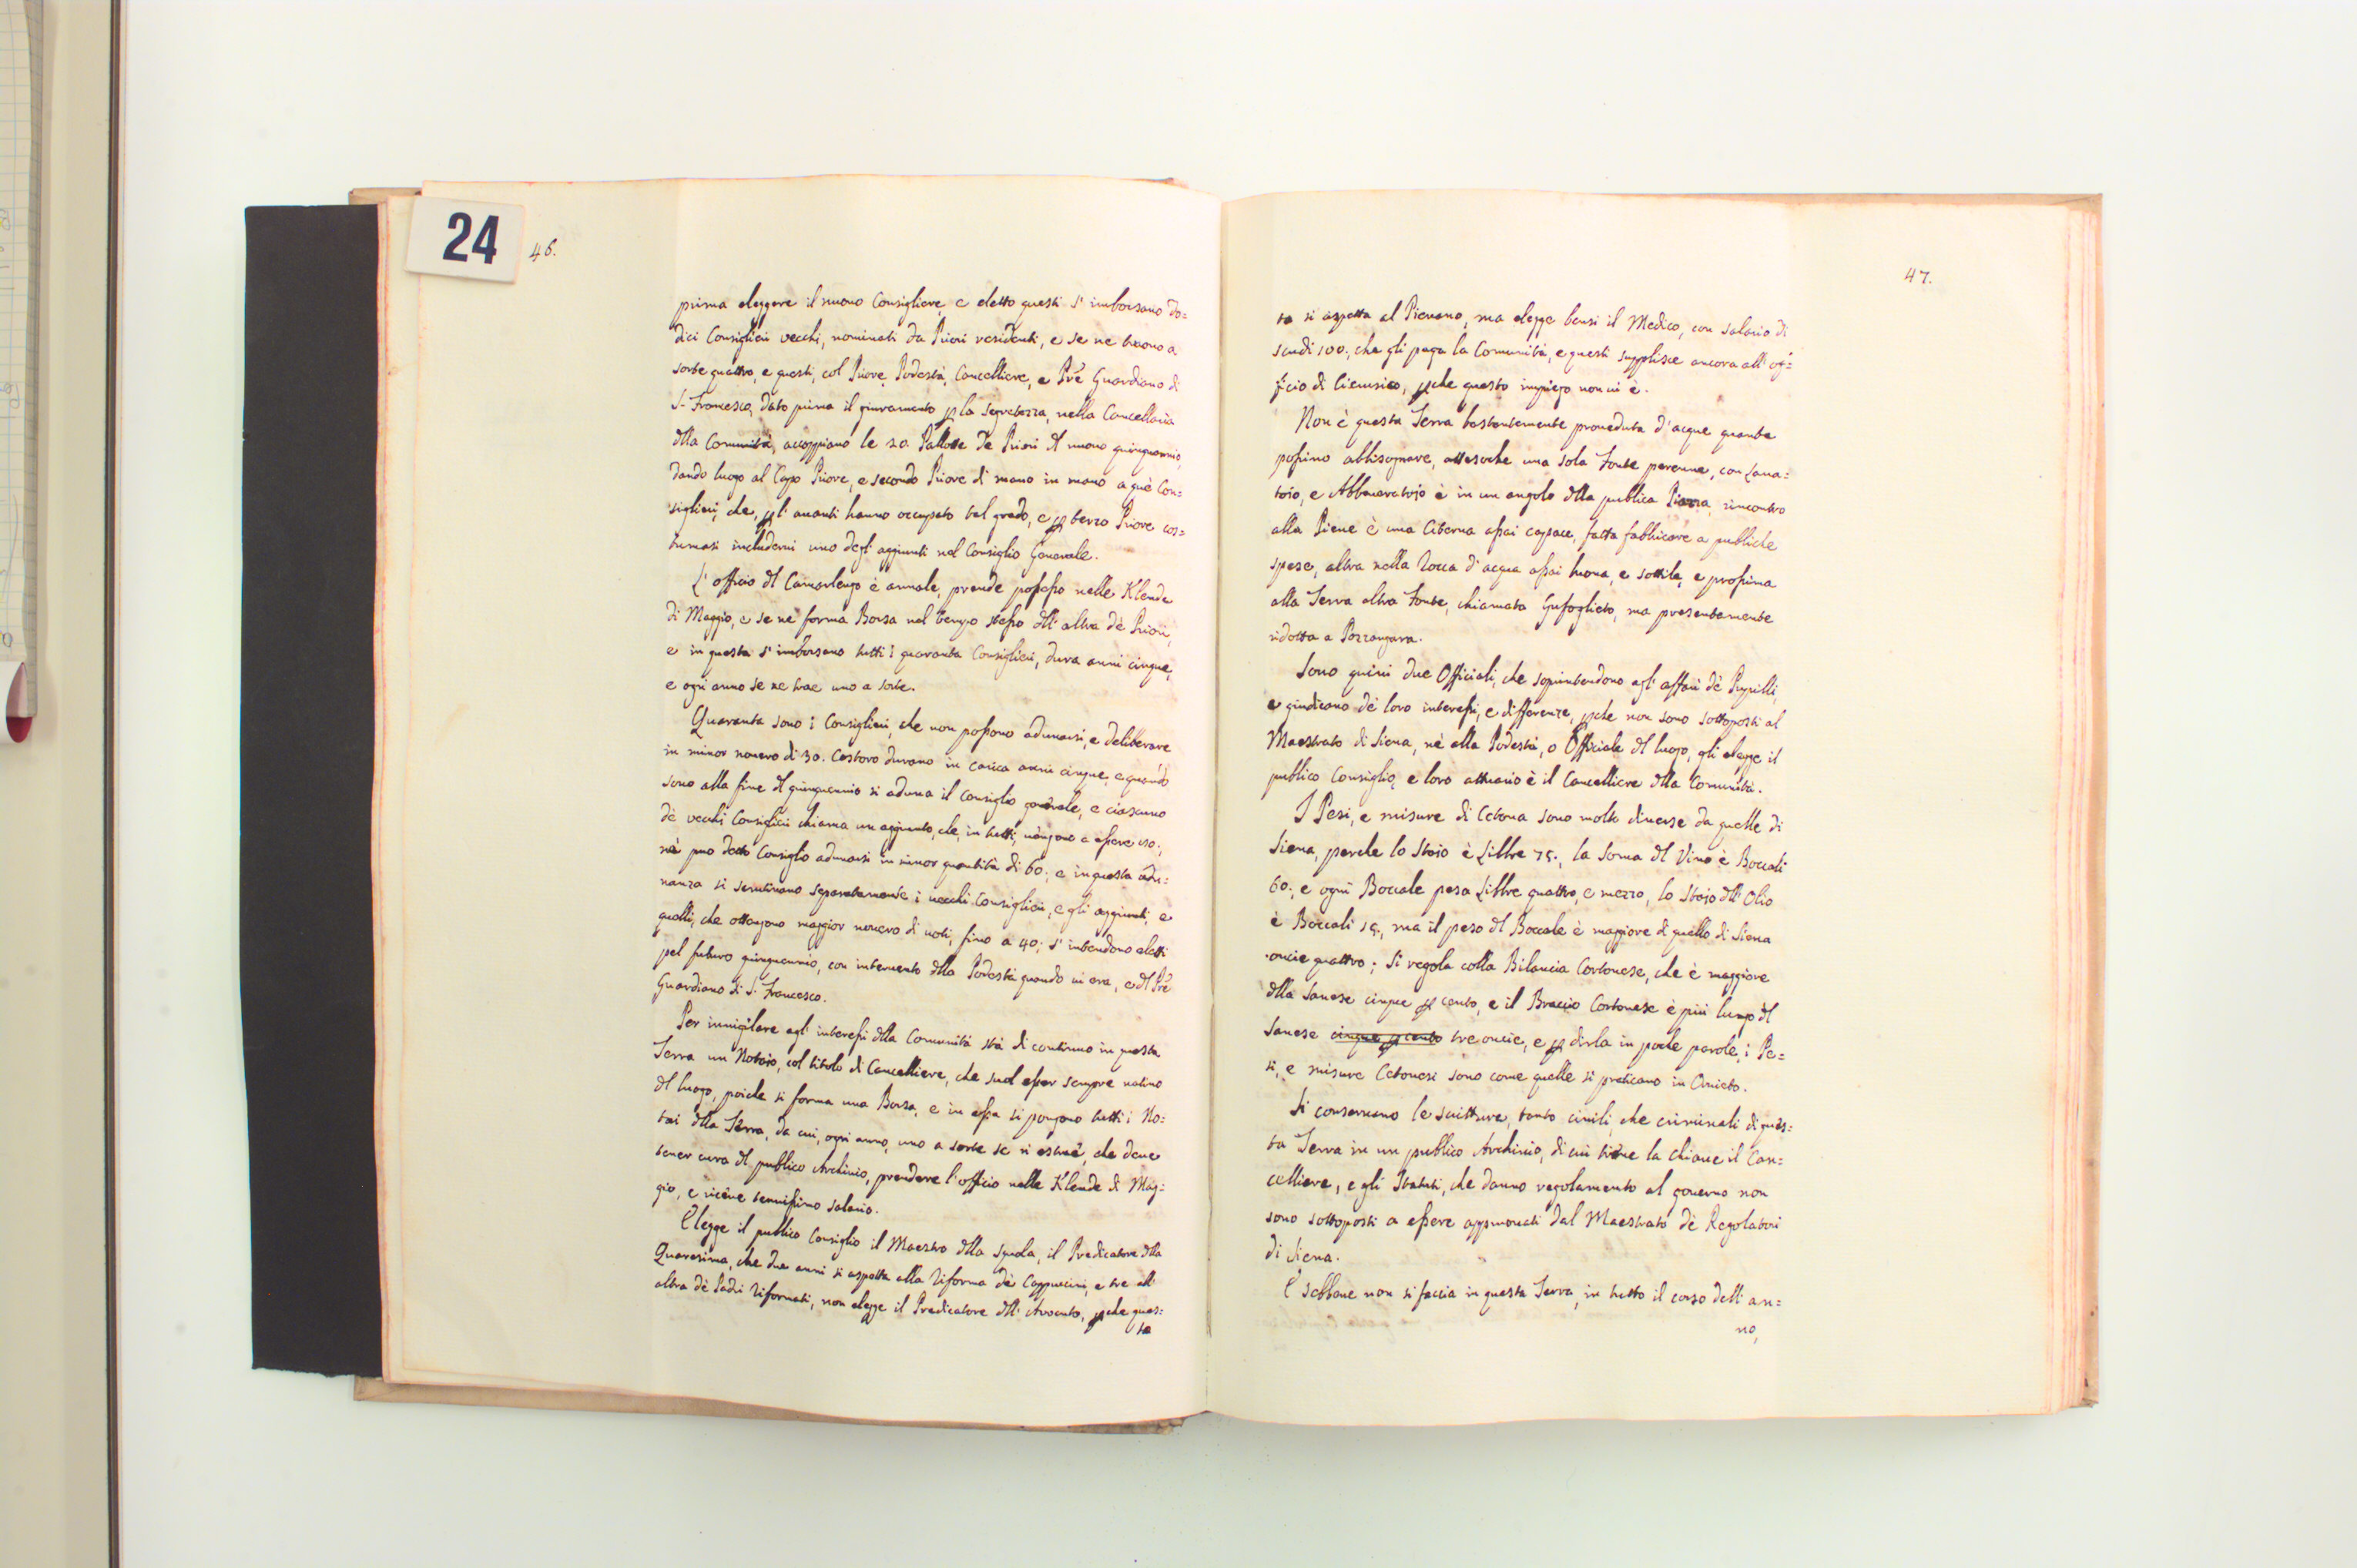 24
46.
prima eleggere il nuovo Consigliere, e eletto questi s' imborsano do=
dici Consiglieri vecchi, nominati da Priori residenti, e se ne traono a
sorte quattro, e questi, col Priore, Podestà, Cancelliere, e Prē Guardiano di
S. Francesco, dato prima il giuramento ꝑ la segretezza, nella Cancellaria
dlla Comunità, accoppiano le 20. Pallotte de Priori dl nuovo quinquennio,
dando luogo al Capo Priore, e secondo Priore di mano in mano a què Con=
siglieri, che, ꝑ l' avanti hanno occupato tal grado, e ꝑ terzo Priore cos=
tumasi includervi uno degl' aggiunti nel Consiglio Generale.
L' officio dl Camarlengo è annale, prende possesso nelle Klende
di Maggio, e se ne forma Borsa nel tempo stesso dll' altra dè Priori,
e in questa s' imborsano tutti i quaranta Consiglieri, dura anni cinque,
e ogni anno se ne trae uno a sorte.
Quaranta sono i Consiglieri, che non possono adunarsi, e deliberare
in minor novero di 30. Costoro durano in carica anni cinque, e quando
sono alla fine dl quinquennio si aduna il Consiglio generale, e ciascuno
dè vecchi Consiglieri chiama un aggiunto, che, in tutti, vengono a essere 120.,
nè puo detto Consiglio adunarsi in minor quantità di 60., e in questa adu=
nanza si scrutinano separatamente i vecchi Consiglieri, e gli aggiunti, e
quelli, che ottengono maggior novero di voti, fino a 40., s' intendono eletti
pel futuro quinquennio, con intervento dlla Podestà quando vi era, e dl Prē
Guardiano di S. Francesco.
Per invigilare agl' interessi dlla Comunità stà di continuo in questa
Terra un Notaio, col titolo di Cancelliere, che suol esser sempre nativo
dl luogo, poiche si forma una Borsa, e in essa si pongono tutti i No=
tai dlla Terra, da cui, ogni anno, uno a sorte se ni estrae, che deve
tener cura dl publico Archivio, prendere l' officio nelle Klende di Mag=
gio, e riceve tenuissimo salario.
Elegge il publico Consiglio il Maestro dlla Squola, il Predicatore dlla
Quaresima, che due anni si aspetta alla riforma dè Cappuccini, e tre all'
altra dè Padri riformati, non elegge il Predicatore dll' Avvento, ꝑche ques=
ta
47.
to si aspetta al Pievano, ma elegge bensi il Medico, con salario di
scudi 100., che gli paga la Comunità, e questi supplisce ancora all' of=
ficio di Cierusico, ꝑche questo impiego non vi è.
Non è questa Terra bastantemente proveduta d' acque quante
possino abbisognare, attesoche una sola Fonte perenne, con Lava=
toio, e Abbeveratoio è in un angolo dlla publica Piazza, rincontro
alla Pieve è una Citerna assai capace, fatta fabbricare a publiche
spese, altra nella Rocca d' acqua assai buona, e sottile, e prossima
alla Terra altra Fonte, chiamata Gufoglieto, ma presentemente
ridotta a Pozzangara.
Sono quivi due Officiali, che soprintendono agl' affari dè Pupilli,
e giudicano dè loro interessi, e differenze, ꝑche non sono sottoposti al
Maestrato di Siena, nè alla Podestà, o Officiale dl luogo, gli elegge il
publico Consiglio, e loro attuario è il Cancelliere dlla Comunità.
I Pesi, e misure di Cetona sono molto diverse da quelle di
Siena, perche lo Staio è Libbre 75., la Soma dl Vino è Boccali
60., e ogni Boccale pesa Libbre quattro, e mezzo, lo Staio dll' Olio
è Boccali 15., ma il peso dl Boccale è maggiore di quello di Siena
oncie quattro; Si regola colla Bilancia Cortonese, che è maggiore
dlla Sanese cinque ꝑ cento, e il Braccio Cortonese è più lungo dl
Sanese cinque ꝑ cento tre oncie, e ꝑ dirla in poche parole, i Pe=
si, e misure Cetonesi sono come quelle si praticano in Orvieto.
Si conservano le scritture, tanto civili, che criminali di ques=
ta Terra in un publico Archivio, di cui tiene la chiave il Can=
celliere, e gli Statuti, che danno regolamento al governo non
sono sottoposti a essere approvati dal Maestrato dè Regolatori
di Siena.
E sebbene non si faccia in questa Terra, in tutto il corso dell' an=
no,